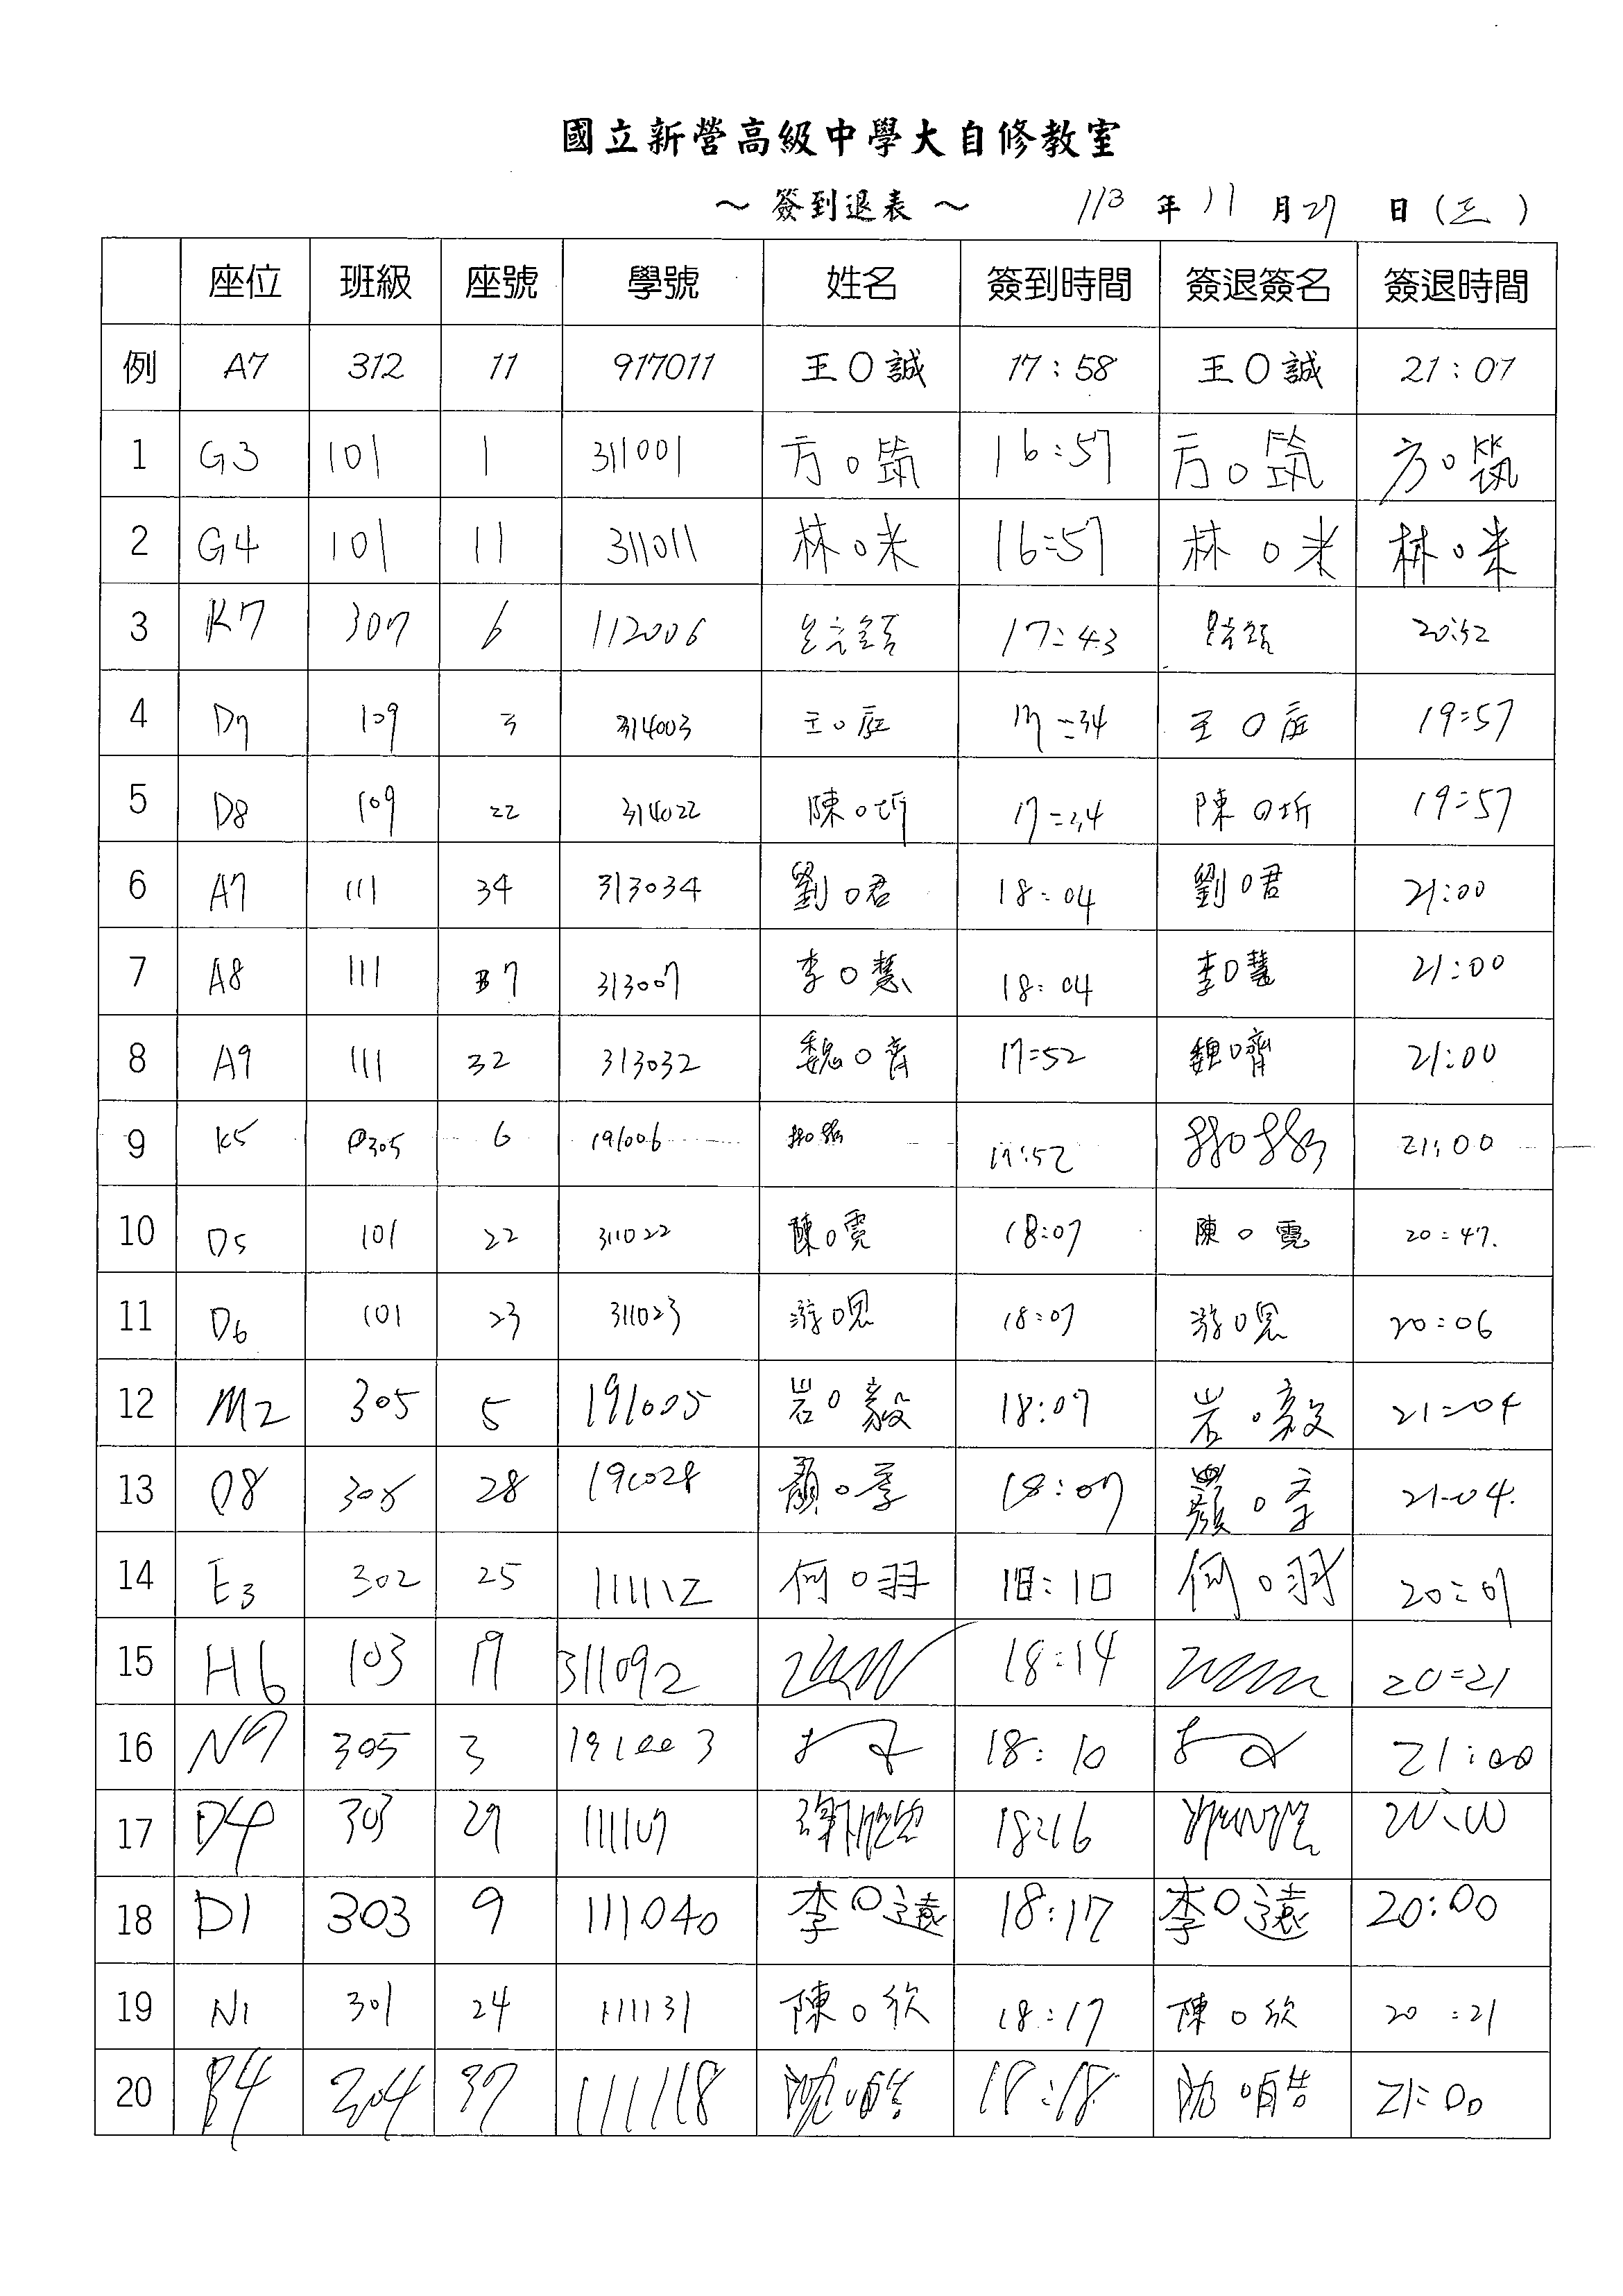 國立新營高級中學大自修教室
～ 簽到退表 ～ 113 年 11 月 27 日 (三)
座位 班級 座號 學號 姓名 簽到時間 簽退簽名 簽退時間
例 A7 312 11 917011 王O誠 17:58 王O誠 21:07
1 G3 101 1 311001 方O筑 16:57 方O筑 方O筑
2 G4 101 11 311011 林O米 16:57 林O米 林O米
3 K7 307 6 112006 17:43 20:52
4 D7 109 3 314003 王O 17:34 王O 19:57
5 D8 109 22 314022 陳O圻 17:34 陳O圻 19:57
6 A7 111 34 313034 劉O君 18:04 劉O君 21:00
7 A8 111 7 313007 李O慧 18:04 李O慧 21:00
8 A9 111 32 313032 魏O齊 17:52 魏O齊 21:00
9 K5 305 6 191006 17:52 21:00
10 D5 101 22 311022 陳O霓 18:07 陳O霓 20:47.
11 D6 101 23 311023 游O 18:07 游O 20:06
12 M2 305 5 191005 岩O毅 18:07 岩O毅 21:04
13 28 18:07 21:04.
14 E3 302 25 111112 何O羽 18:10 何O羽 20:01
15 H6 103 19 311092 18:14 20:21
16 N7 305 3 191003 18:10 21:00
17 D4 303 29 111107 18:16
18 D1 303 9 111040 李O遠 18:17 李O遠 20:00
19 N1 301 24 111131 陳O欣 18:17 陳O欣 20:21
20 304 37 111118 18:18 21:00